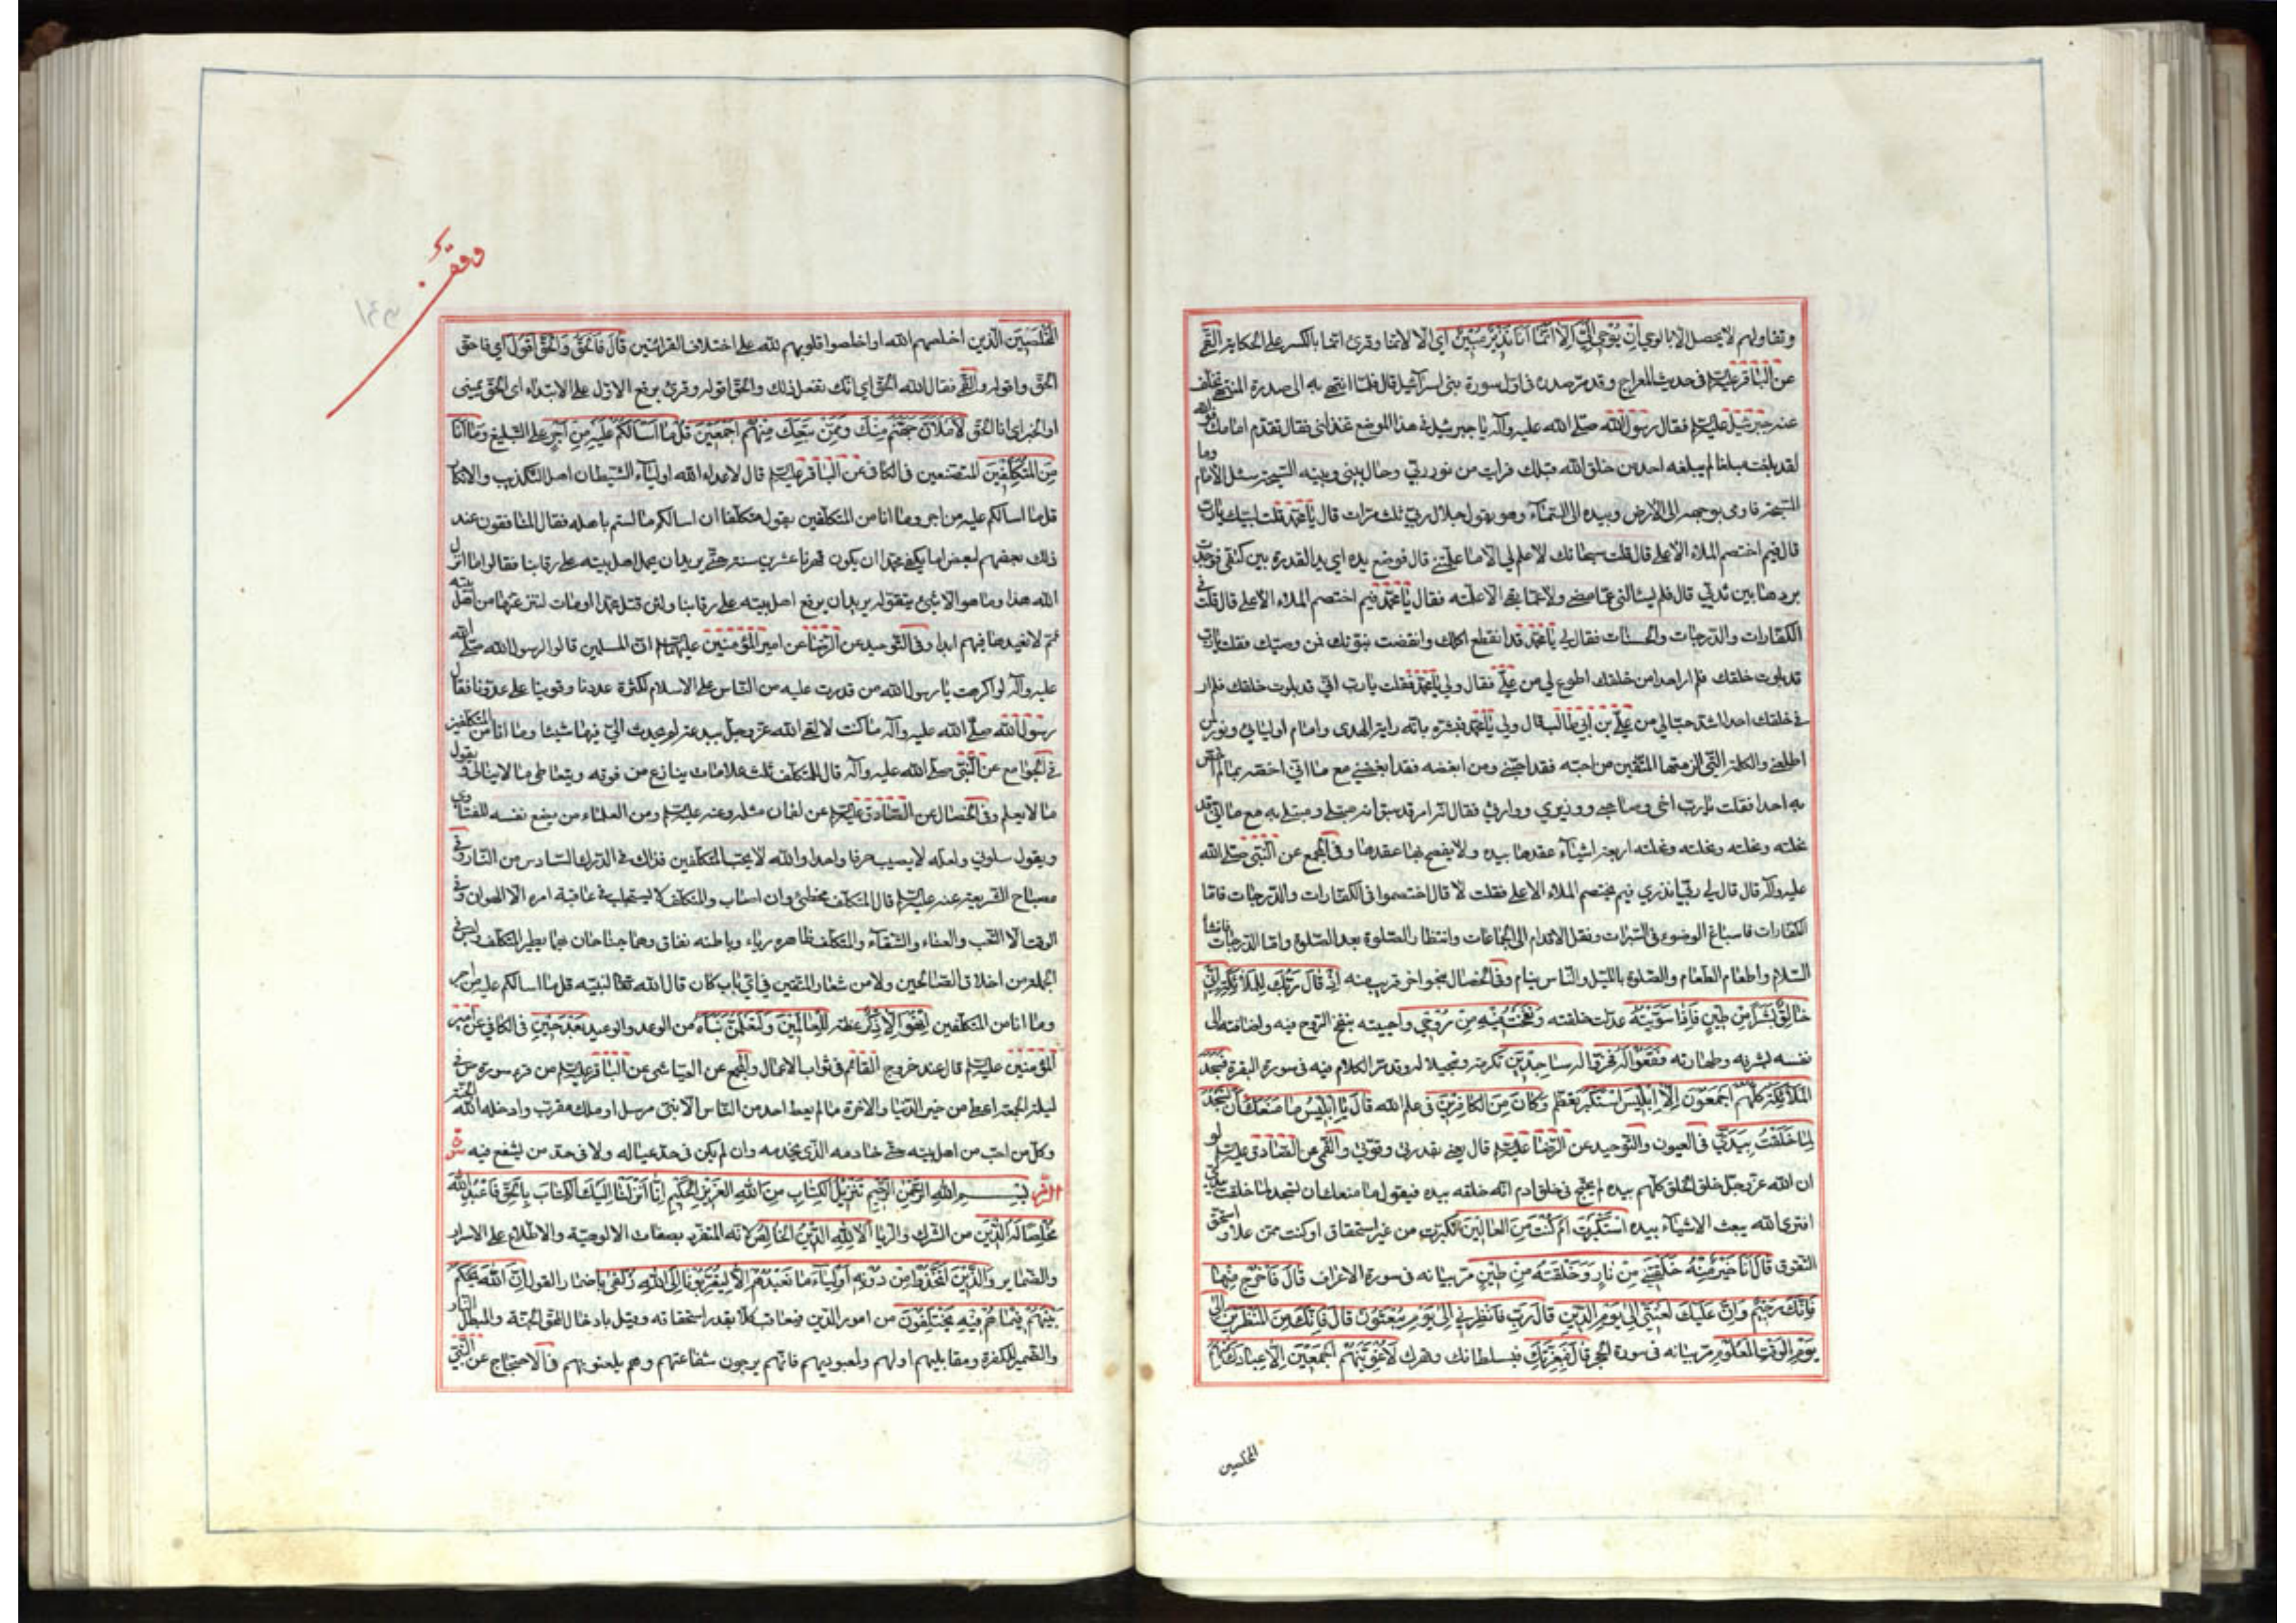 وتقاولهم لا يحصل الا بالوحي اِنْ يُوحى اِلَيَّ اِلّا اَنَّما اَنَا نَذيرٌ مُبينٌ اي الا لانما وقرئ انما بالكسر على الحكاية القمّي
عن الباقر عليه السلام في حديث المعراج وقد مر صدره في اول سورة بني اسرائيل قال فلما انتهى به الى سدرة المنتهى تخلف
عنه جبرئيل عليه السلام فقال رسول الله صلى الله عليه وآله يا جبرئيل في هذا الموضع تخذلني فقال تقدم امامك فوالله
لقد بلغت مبلغا لم يبلغه احد من خلق الله قبلك فرايت من نور ربي وحال بيني وبينه السبحة سئل الامام وما
السبحة فاومى بوجهه الى الارض وبيده الى السماء وهو يقول جلال ربي ثلث مرات قال يا محمد قلت لبيك يا رب
قال فيم اختصم الملاء الاعلى قال قلت سبحانك لا علم لي الا ما علمتني قال فوضع يده اي يد القدرة بين كتفي فوجدت
بردها بين ثديي قال فلم يسالني عما مضى ولا عما بقي الا علمته فقال يا محمد فيم اختصم الملاء الاعلى قال قلت في
الكفارات والدرجات والحسنات فقال لي يا محمد قد انقطع اكلك وانقضت نبوتك فمن وصيك فقلت يا رب
قد بلوت خلقك فلم ار احدا من خلقك اطوع لي من علي فقال ولي يا محمد فقلت يا رب اني قد بلوت خلقك فلم ار
في خلقك احدا اشد حبا لي من علي بن ابي طالب قال ولي يا محمد فبشره بانه راية الهدى وامام اوليائي ونور لمن
اطاعني والكلمة التي الزمتها المتقين من احبه فقد احبني ومن ابغضه فقد ابغضني مع ما اني اخصه بما لم اخص
به احدا فقلت يا رب اخي وصاحبي ووزيري ووارثي فقال انه امر قد سبق انه مبتلى ومبتلى به مع ما اني قد
نحلته ونحلته ونحلته ونحلته اربعة اشياء عقدها بيده ولا يفصح بما عقدها وفي المجمع عن النبي صلى الله
عليه وآله قال قال لي ربي اتدري فيم يختصم الملاء الاعلى فقلت لا قال اختصموا في الكفارات والدرجات فاما
الكفارات فاسباغ الوضوء في السبرات ونقل الاقدام الى الجماعات وانتظار الصلوة بعد الصلوة واما الدرجات فافشاء
السلام واطعام الطعام والصلوة بالليل والناس نيام وفي الخصال بنحو اخر قريب منه اِذْ قالَ رَبُّكَ لِلْمَلائِكَةِ اِنّي
خالِقٌ بَشَرًا مِنْ طينٍ فَاِذا سَوَّيْتُهُ عدلت خلقته وَنَفَخْتُ فيهِ مِنْ رُوحي واحييته بنفخ الروح فيه واضافته الى
نفسه لشرفه وطهارته فَقَعُوا لَهُ فخروا له ساجِدينَ تكرمة وتبجيلا له وقد مر الكلام فيه في سورة البقرة فَسَجَدَ
الْمَلائِكَةُ كُلُّهُمْ اَجْمَعُونَ اِلّا اِبْليسَ اسْتَكْبَرَ تعظم وَكانَ مِنَ الْكافِرينَ في علم الله قالَ يا اِبْليسُ ما مَنَعَكَ اَنْ تَسْجُدَ
لِما خَلَقْتُ بِيَدَيَّ في العيون والتوحيد عن الرضا عليه السلام قال يعني بقدرتي وقوتي والقمي عن الصادق عليه السلام لو
ان الله عز وجل خلق الخلق كلهم بيده لم يحتج في خلق ادم انه خلقه بيده فيقول ما منعك ان تسجد لما خلقت بيدي
افترى الله يبعث الاشياء بيده اَسْتَكْبَرْتَ اَمْ كُنْتَ مِنَ الْعالينَ تكبرت من غير استحقاق او كنت ممن علا واستحق
التفوق قالَ اَنَا خَيْرٌ مِنْهُ خَلَقْتَني مِنْ نارٍ وَخَلَقْتَهُ مِنْ طينٍ مر بيانه في سورة الاعراف قالَ فَاخْرُجْ مِنْها
فَاِنَّكَ رَجيمٌ وَاِنَّ عَلَيْكَ لَعْنَتي اِلى يَوْمِ الدّينِ قالَ رَبِّ فَاَنْظِرْني اِلى يَوْمِ يُبْعَثُونَ قالَ فَاِنَّكَ مِنَ الْمُنْظَرينَ اِلى
يَوْمِ الْوَقْتِ الْمَعْلُومِ مر بيانه في سورة الحجر قالَ فَبِعِزَّتِكَ فبسلطانك وقهرك لَاُغْوِيَنَّهُمْ اَجْمَعينَ اِلّا عِبادَكَ مِنْهُمُ
المخلصين
وقف
الْمُخْلَصينَ الذين اخلصهم الله او اخلصوا قلوبهم لله على اختلاف القرائتين قالَ فَالْحَقُّ وَالْحَقَّ اَقُولُ اي فاحق
الحق واقوله والقمي فقال الله الحق اي انك تفعل ذلك والحق اقوله وقرئ برفع الاول على الابتداء اي الحق يميني
او الخبر اي انا الحق لَاَمْلَاَنَّ جَهَنَّمَ مِنْكَ وَمِمَّنْ تَبِعَكَ مِنْهُمْ اَجْمَعينَ قُلْ ما اَسْاَلُكُمْ عَلَيْهِ مِنْ اَجْرٍ على التبليغ وَما اَنَا
مِنَ الْمُتَكَلِّفينَ المتصنعين في الكافي عن الباقر عليه السلام قال لاعداء الله اولياء الشيطان اهل التكذيب والانكار
قل ما اسالكم عليه من اجر وما انا من المتكلفين يقول متكلفا ان اسالكم ما لستم باهله فقال المنافقون عند
ذلك بعضهم لبعض اما يكفي محمدا ان يكون قهرنا عشرين سنة حتى يريد ان يحمل اهل بيته على رقابنا فقالوا ما انزل
الله هذا وما هو الا شيء يتقوله يريد ان يرفع اهل بيته على رقابنا ولئن قتل محمد او مات لننزعنها من اهل بيته
ثم لا نعيدها فيهم ابدا وفي التوحيد عن الرضا عن امير المؤمنين عليهما السلام ان المسلمين قالوا لرسول الله صلى الله
عليه وآله لو اكرهت يا رسول الله من قدرت عليه من الناس على الاسلام لكثرة عددنا وقوينا على عدونا فقال
رسول الله صلى الله عليه وآله ما كنت لالقى الله عز وجل ببدعة لم يحدث الي فيها شيئا وما انا من المتكلفين
في الجوامع عن النبي صلى الله عليه وآله قال للمتكلف ثلث علامات ينازع من فوقه ويتعاطى ما لا ينال ويقول
ما لا يعلم وفي الخصال عن الصادق عليه السلام عن لقمان مثله وعنه عليه السلام ومن العلماء من يضع نفسه للفتاوى
ويقول سلوني ولعله لا يصيب حرفا واحدا والله لا يحب المتكلفين فذاك في الدرك السادس من النار وفي
مصباح الشريعة عنه عليه السلام قال المتكلف مخطئ وان اصاب والمتكلف لا يستجلب في عاقبة امره الا الهوان وفي
الوقت الا التعب والعناء والشقاء والمتكلف ظاهره رياء وباطنه نفاق وهما جناحان بهما يطير المتكلف وليس في
الجملة من اخلاق الصالحين ولا من شعار المتقين في اي باب كان قال الله تعالى لنبيه قل ما اسالكم عليه من اجر
وما انا من المتكلفين اِنْ هُوَ اِلّا ذِكْرٌ عظة لِلْعالَمينَ وَلَتَعْلَمُنَّ نَبَاَهُ من الوعد والوعيد بَعْدَ حينٍ في الكافي عن امير
المؤمنين عليه السلام قال عند خروج القائم في ثواب الاعمال والمجمع عن العياشي عن الباقر عليه السلام من قرء سورة ص في
ليلة الجمعة اعطي من خير الدنيا والاخرة ما لم يعط احد من الناس الا نبي مرسل او ملك مقرب وادخله الله الجنة
وكل من احب من اهل بيته حتى خادمه الذي يخدمه وان لم يكن في حد عياله ولا في حد من يشفع فيه سورة
الزمر بِسْمِ اللهِ الرَّحْمنِ الرَّحيمِ تَنْزيلُ الْكِتابِ مِنَ اللهِ الْعَزيزِ الْحَكيمِ اِنّا اَنْزَلْنا اِلَيْكَ الْكِتابَ بِالْحَقِّ فَاعْبُدِ اللهَ
مُخْلِصًا لَهُ الدّينَ من الشرك والريا اَلا لِلّهِ الدّينُ الْخالِصُ لانه المتفرد بصفات الالوهية والاطلاع على الاسرار
والضماير وَالَّذينَ اتَّخَذُوا مِنْ دُونِهِ اَوْلِياءَ ما نَعْبُدُهُمْ اِلّا لِيُقَرِّبُونا اِلَى اللهِ زُلْفى باضمار القول اِنَّ اللهَ يَحْكُمُ
بَيْنَهُمْ فيما هُمْ فيهِ يَخْتَلِفُونَ من امور الدين فيعاقب كلا بقدر استحقاقه وقيل بادخال المحق الجنة والمبطل النار
والضمير للكفرة ومقابليهم او لهم ولمعبوديهم فانهم يرجون شفاعتهم وهم يلعنونهم في الاحتجاج عن النبي